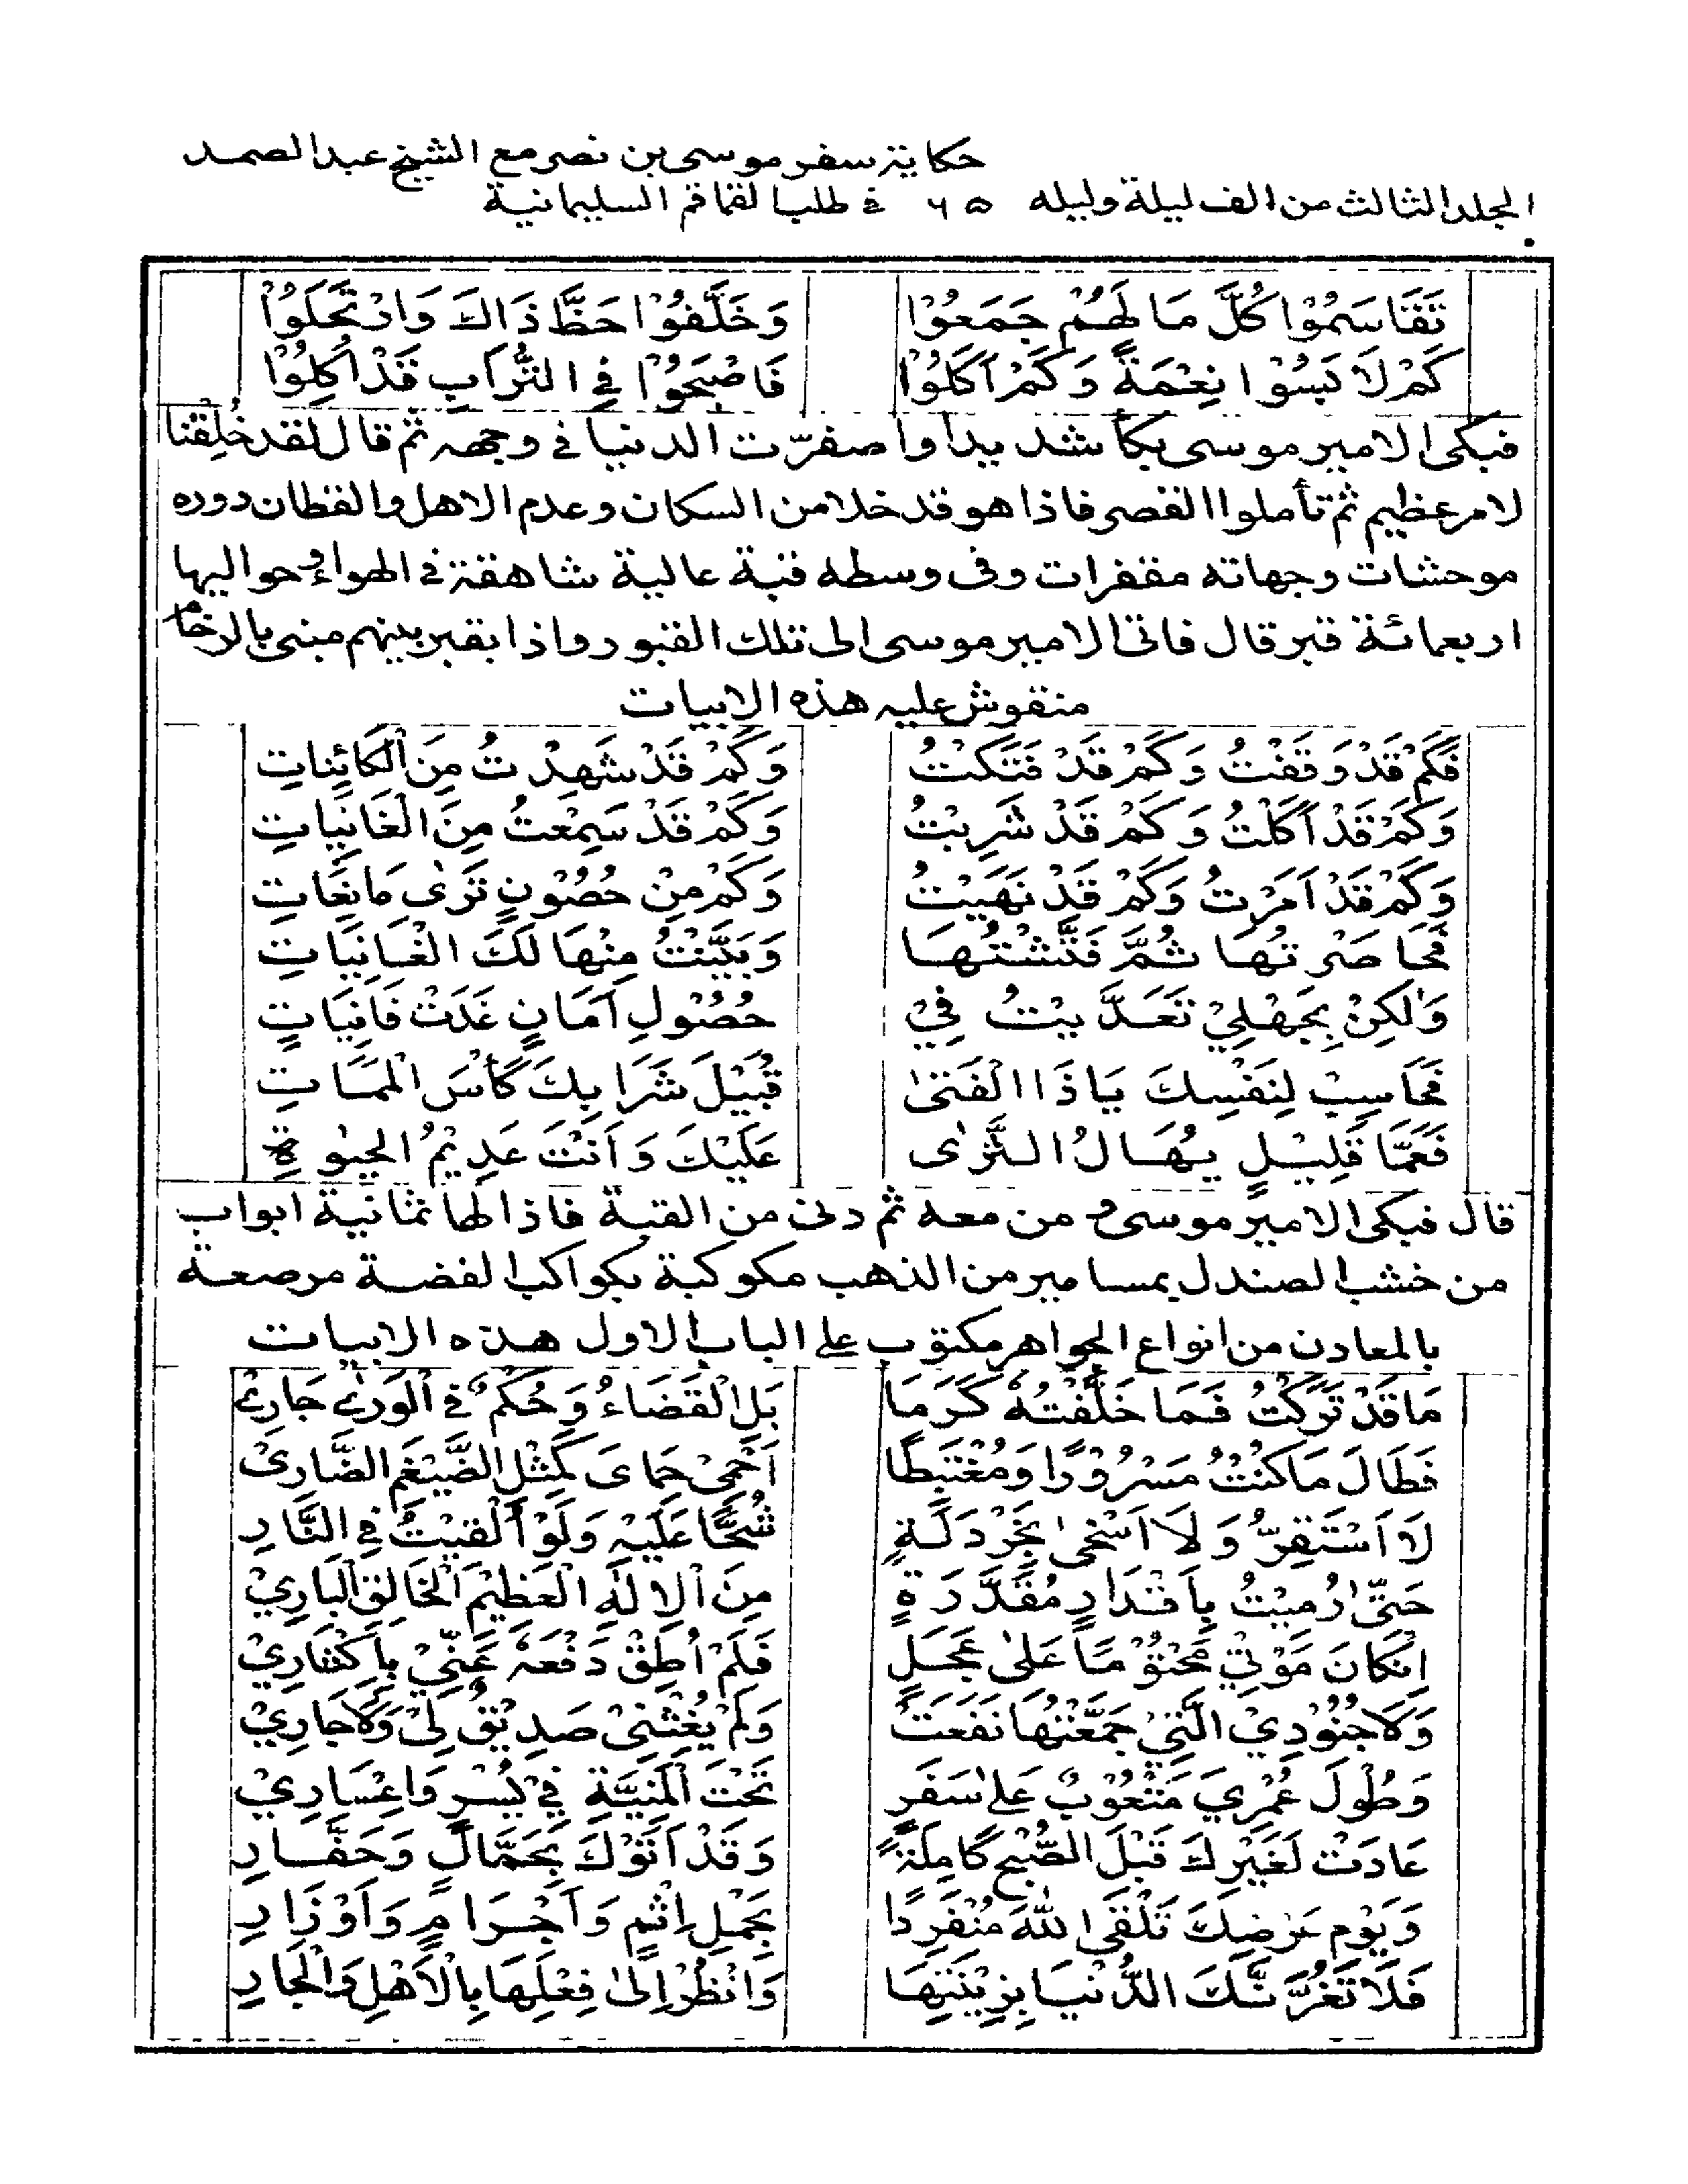 حكاية سفر موسى بن نصر مع الشيخ عبد الصمد
المجلد الثالث من الف ليلة وليله ٦٥ في طلب القماقم السليمانية
تَقَاسَمُوْا كُلَّ مَا لَهُمْ جَمَعُوْا وَخَلَّفُوْا حَظَّ ذَاكَ وَارْتَحَلُوْا
كَمْ لَابَسُوْا نِعْمَةً وَكَمْ اَكَلُوْا فَاصْبَحُوْا فِي التُّرَابِ قَدْ اُكِلُوْا
فبكى الامير موسى بكأ شديدا واصفرّت الدنيا في وجهه ثم قال لقد خُلِقْنا
لامر عظيم ثم تأملوا القصر فاذا هو قد خلا من السكان وعدم الاهل والقطان دوره
موحشات وجهاته مقفرات وفى وسطه قبة عالية شاهقة في الهواء وحواليها
اربعمائة قبر قال فاتى الامير موسى الى تلك القبور واذا بقبر بينهم مبنى بالرخام
منقوش عليه هذه الابيات
فَكَمْ قَدْ وَقَفْتُ وَكَمْ قَدْ فَتَكْتُ وَكَمْ قَدْ شَهِدْتُ مِنَ الْكَائِنَاتِ
وَكَمْ قَدْ اَكَلْتُ وَكَمْ قَدْ شَرِبْتُ وَكَمْ قَدْ سَمِعْتُ مِنَ الْغَانِيَاتِ
وَكَمْ قَدْ اَمَرْتُ وَكَمْ قَدْ نَهَيْتُ وَكَمْ مِنْ حُصُوْنٍ تَرٰى مَانِعَاتِ
فَحَاصَرْتُهَا ثُمَّ فَتَّشْتُهَا وَبَيَّنْتُ مِنْهَا لَكَ الْغَانِيَاتِ
وَلٰكِنْ بِجَهْلِيْ تَعَدَّيْتُ فِيْ حُصُوْلِ اَمَانٍ غَدَتْ فَانِيَاتٍ
فَحَاسِبْ لِنَفْسِكَ يَاذَا الْفَتٰى قُبَيْلَ شَرَابِكَ كَأْسَ الْمَمَاتِ
فَعَمَّا قَلِيْلٍ يُهَالُ الثَّرٰى عَلَيْكَ وَاَنْتَ عَدِيْمُ الحيٰوةِ
قال فبكى الامير موسى و من معه ثم دنى من القبة فاذا لها ثمانية ابواب
من خشب الصندل بمسامير من الذهب مكوكبة بكواكب الفضة مرصعة
بالمعادن من انواع الجواهر مكتوب على الباب الاول هذه الابيات
مَا قَدْ تَرَكْتُ فَمَا خَلَّفْتُهُ كَرَمَا بَلِ الْقَضَاءُ وَحُكْمٌ فِي الْوَرٰى جَارِىْ
فَطَالَ مَا كُنْتُ مَسْرُوْرًا وَمُغْتَبِطًا اَحْمِيْ حِمَاىَ كَمِثْلِ الضَّيْغَمِ الضَّارِىْ
لَا اَسْتَقِرُّ وَلَا اَسْخٰى بِخَرْدَلَةٍ شُحًّا عَلَيْهِ وَلَوْ اُلْقِيْتُ فِي النَّارِ
حَتّٰى رُمِيْتُ بِاَقْدَارٍ مُقَدَّرَةٍ مِنَ الْاِلٰهِ الْعَظِيْمِ الْخَالِقِ الْبَارِيْ
اِنْكَانَ مَوْتِيْ مَحْتُوْمًا عَلٰى عَجَلٍ فَلَمْ اُطِقْ دَفْعَهُ عَنِّيْ بِاِكْثَارِيْ
وَلَا جُنُوْدِيْ الَّتِيْ جَمَّعْتُهَا نَفَعَتْ وَلَمْ يُغِثْنِىْ صَدِيْقٌ لِىْ وَلَا جَارِيْ
وَطُوْلَ عُمْرِيَ مَتْعُوْبٌ عَلٰى سَفَرٍ تَحْتَ الْمَنِيَّةِ فِيْ يُسْرٍ وَاِعْسَارِيْ
عَادَتْ لَغَيْرِكَ قَبْلَ الصُّبْحِ كَامِلَةً وَقَدْ اَتَوْكَ بِحَمَّالٍ وَحَفَّارِ
وَيَوْمِ عَرْضِكَ تَلْقَى اللهَ مُنْفَرِدًا بِحَمْلِ اِثْمٍ وَاَجْرَامٍ وَاَوْزَارِ
فَلَا تَغُرَّنَّكَ الدُّنْيَا بِزِيْنَتِهَا وَانْظُرْ اِلٰى فِعْلِهَا بِالْاَهْلِ وَالْجَارِ